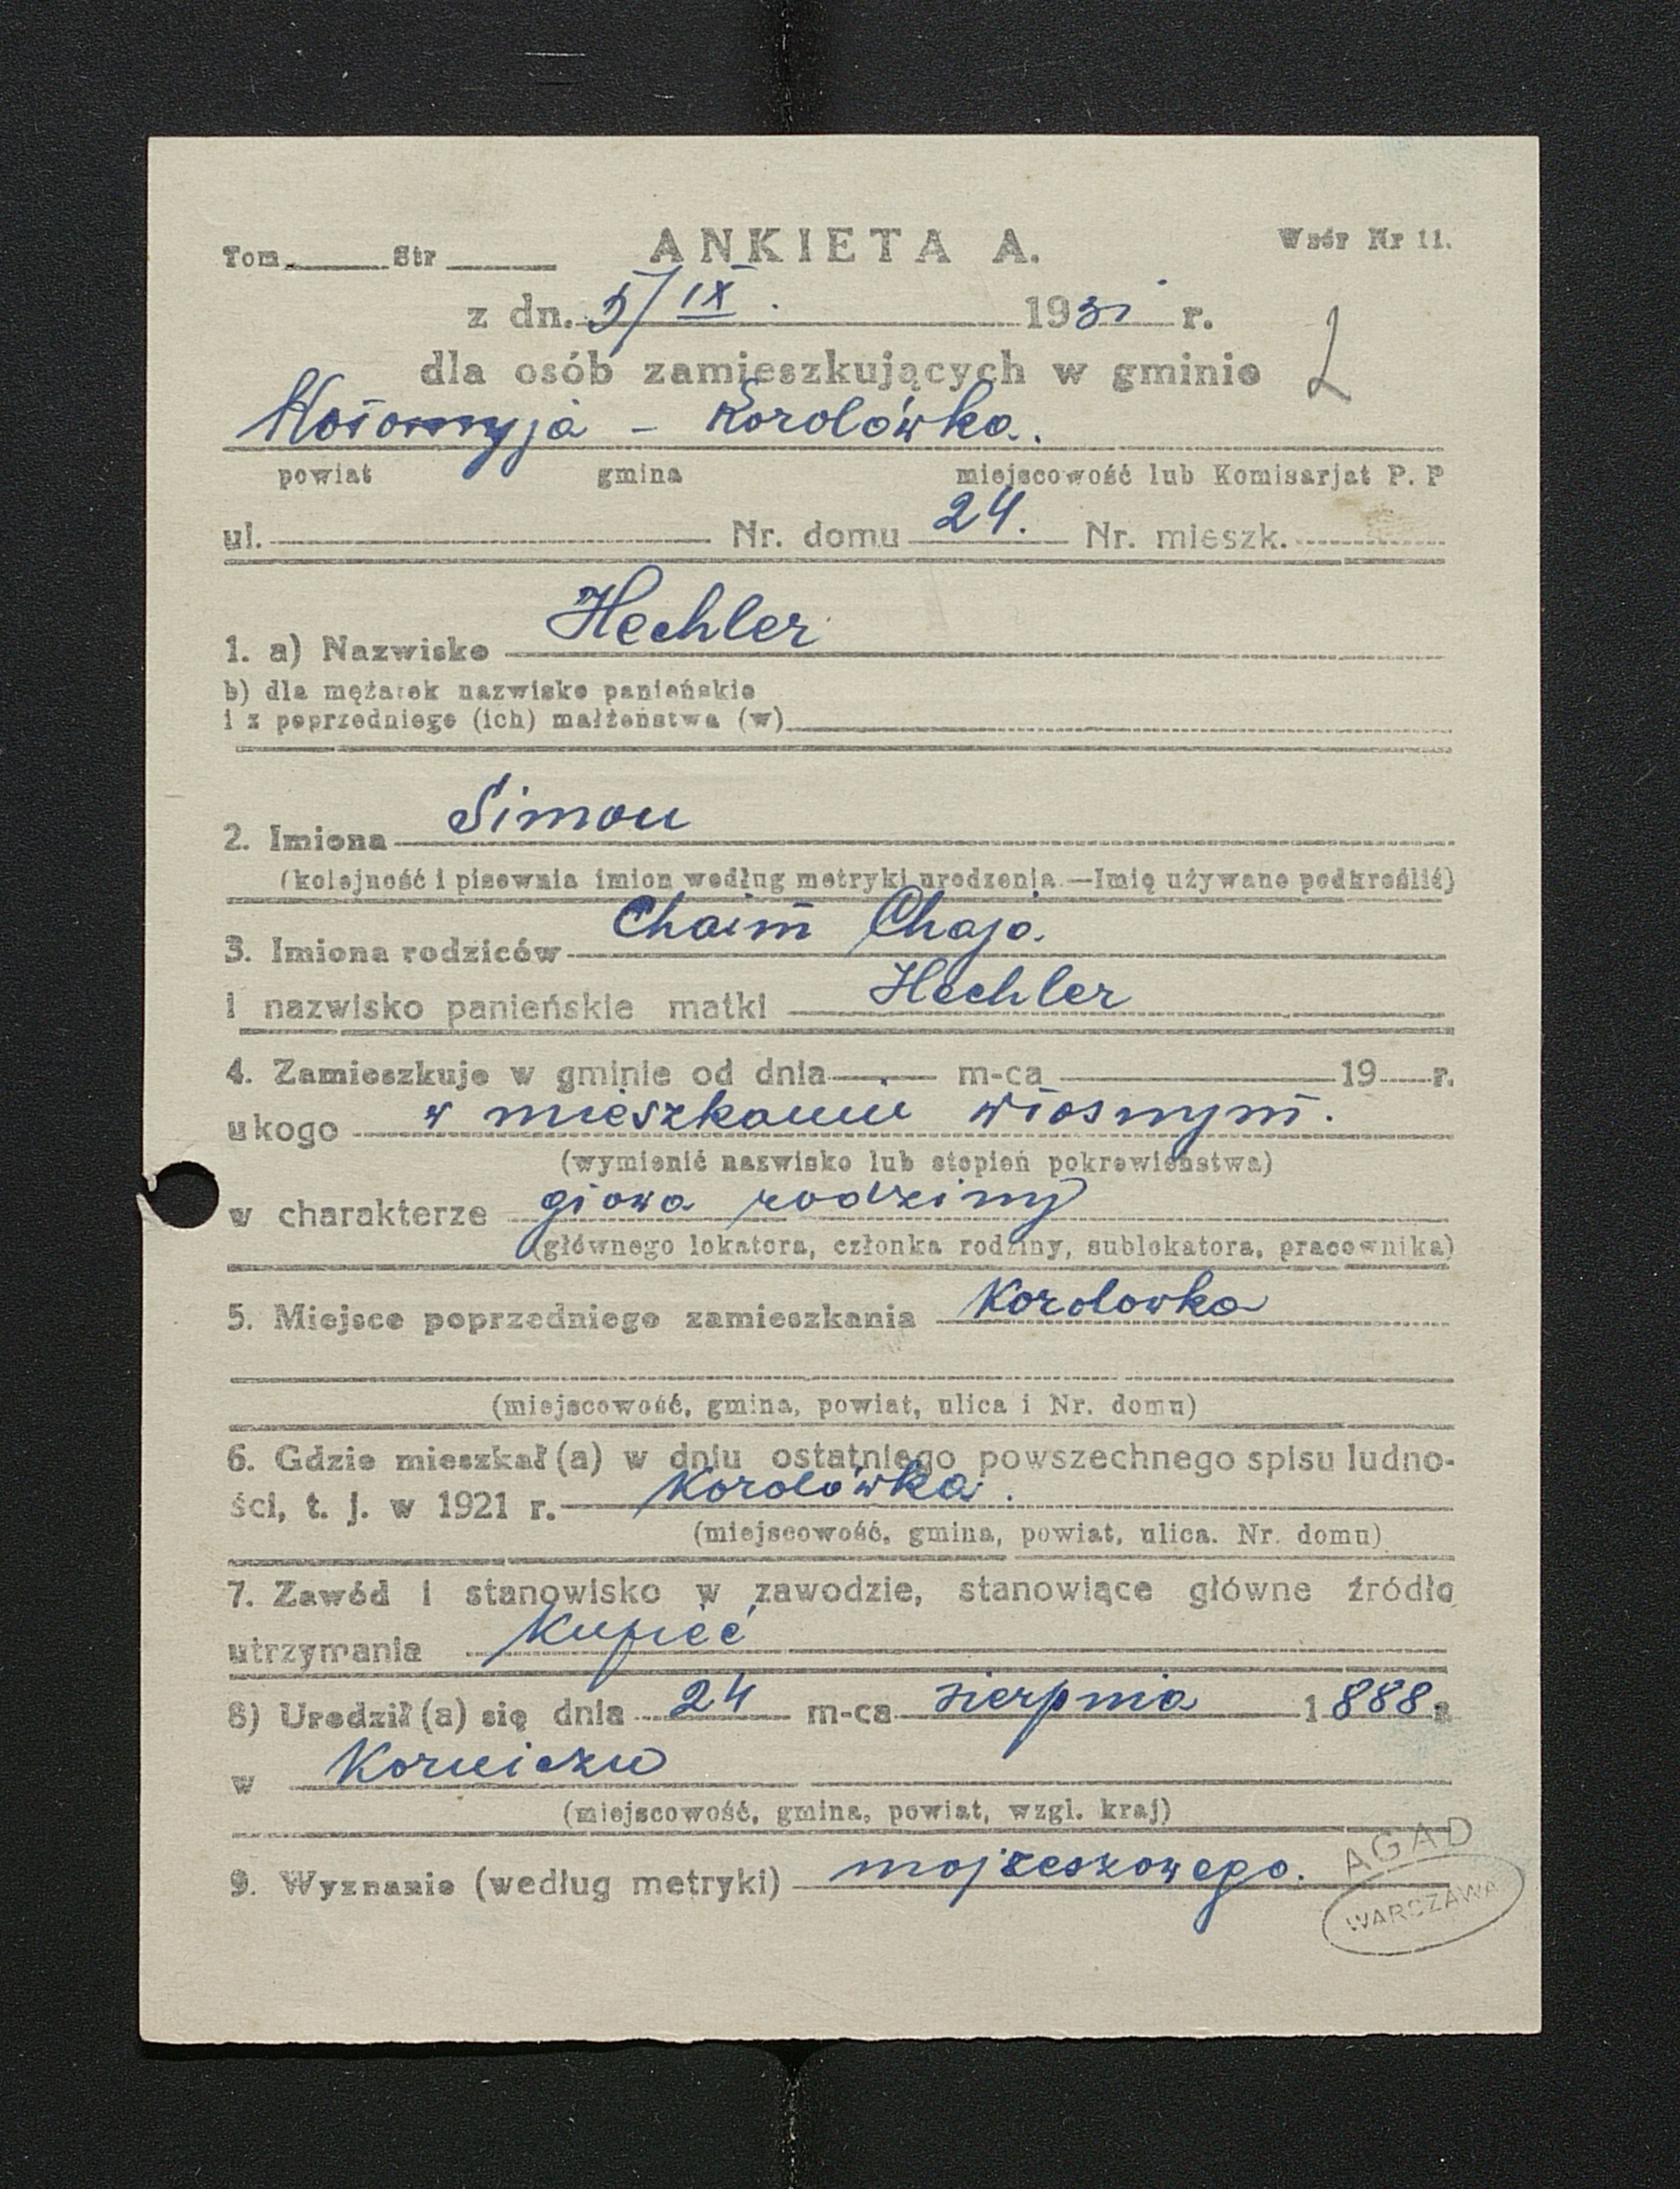 Tom ______ Str ______ ANKIETA A. Wzór Nr 11.
z dn. 5/IX. 1931 r.
dla osób zamieszkujących w gminie
Kołomyja - Korolówka.
powiat gmina miejscowość lub Komisarjat P. P
ul. Nr. domu 24. Nr. mieszk.
1. a) Nazwisko Hechler
b) dla mężatek nazwisko panieńskie
i z poprzedniego (ich) małżeństwa (w)
2. Imiona Simon
(kolejność i pisownia imion według metryki urodzenia.—Imię używane podkreślić)
3. Imiona rodziców Chaim Chaja
i nazwisko panieńskie matki Hechler
4. Zamieszkuje w gminie od dnia m-ca 19 r.
u kogo w mieszkaniu własnym.
(wymienić nazwisko lub stopień pokrewieństwa)
w charakterze głowa rodziny
(głównego lokatora, członka rodziny, sublokatora, pracownika)
5. Miejsce poprzedniego zamieszkania Korolowka
(miejscowość, gmina, powiat, ulica i Nr. domu)
6. Gdzie mieszkał(a) w dniu ostatniego powszechnego spisu ludno-
ści, t. j. w 1921 r. Korolówka.
(miejscowość, gmina, powiat, ulica. Nr. domu)
7. Zawód i stanowisko w zawodzie, stanowiące główne źródło
utrzymania kupiec
8) Urodził(a) się dnia 24 m-ca sierpnia 1888 r
w Korniczu
(miejscowość, gmina, powiat, wzgl. kraj)
9. Wyznanie (według metryki) mojżeszowego.
AGAD
WARSZAWA